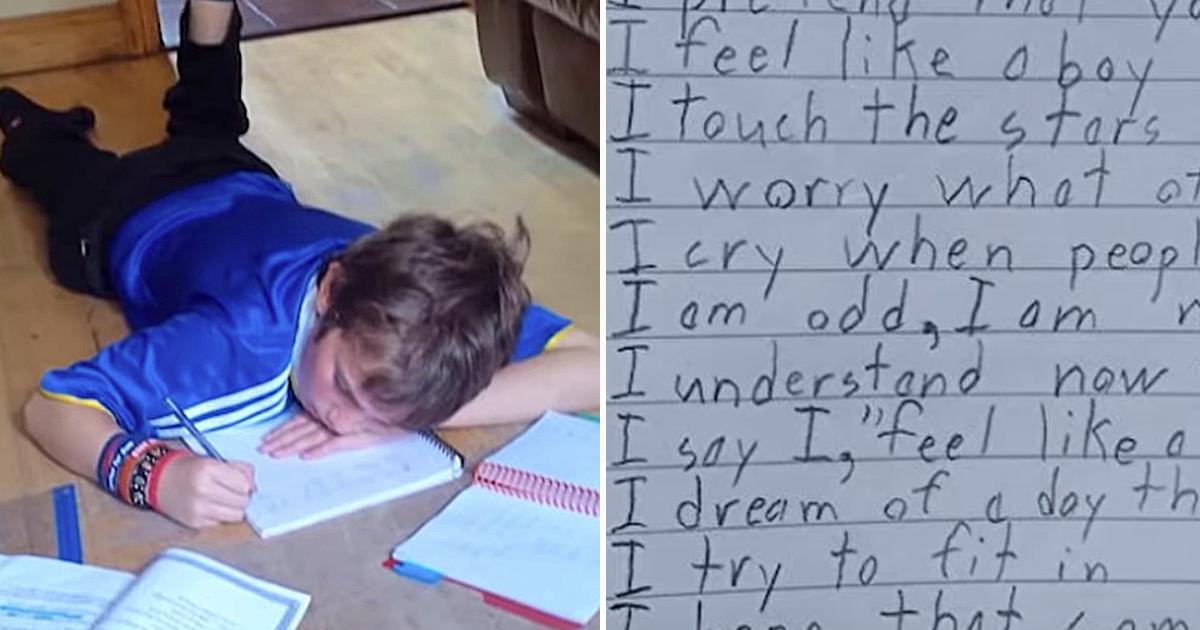 I pretend that yo
I feel like a boy
I touch the stars
I worry what ot
I cry when peopl
I am odd, I am n
I understand now
I say I, "feel like a
I dream of a day th
I try to fit in
I hope that